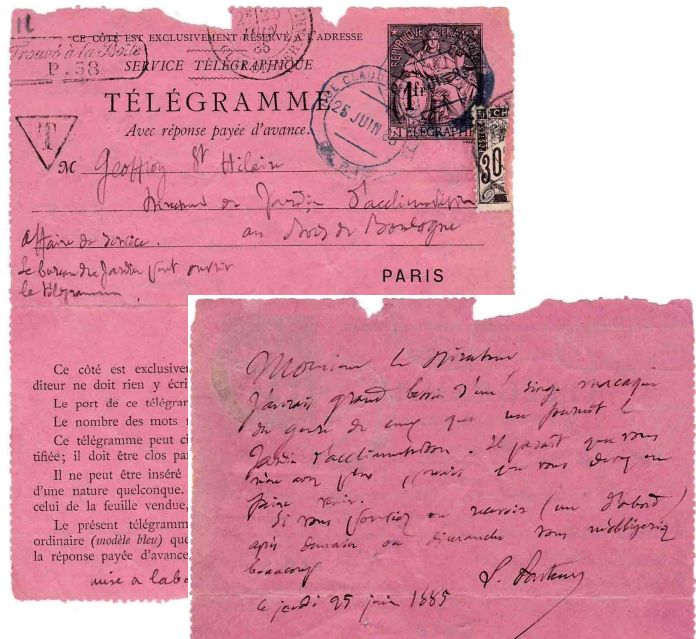 CE COTÉ EST EXCLUSIVEMENT RÉSERVÉ A L'ADRESSE
Trouvé à la Boîte
P. 38
SERVICE TÉLÉGRAPHIQUE
TÉLÉGRAMME
Avec réponse payée d'avance.
T
REPUBLIQUE FRANÇAISE
1fr
TÉLÉGRAPHE
25 JUIN
30
M Geoffroy St Hilaire
Directeur du Jardin d'acclimatation
au Bois de Boulogne
affaire de service.
Le bureau du Jardin peut ouvrir
le télégramme
PARIS
Ce côté est exclusive
diteur ne doit rien y écri
Le port de ce télégra
Le nombre des mots
Ce télégramme peut ci
tifiée; il doit être clos pa
Il ne peut être inséré
d'une nature quelconque.
celui de la feuille vendue,
Le présent télégramm
ordinaire (modèle bleu) que
la réponse payée d'avance
mise à la bo
Monsieur le Directeur,
J'aurais grand besoin d'un singe macaque
du genre de ceux que me fournit le
Jardin d'acclimatation. Il parait que vous
n'en avez plus
faire venir.
Si vous pouviez en recevoir (un d'abord)
après demain ou dimanche vous m'obligeriez
beaucoup
L. Pasteur
ce jeudi 25 juin 1885